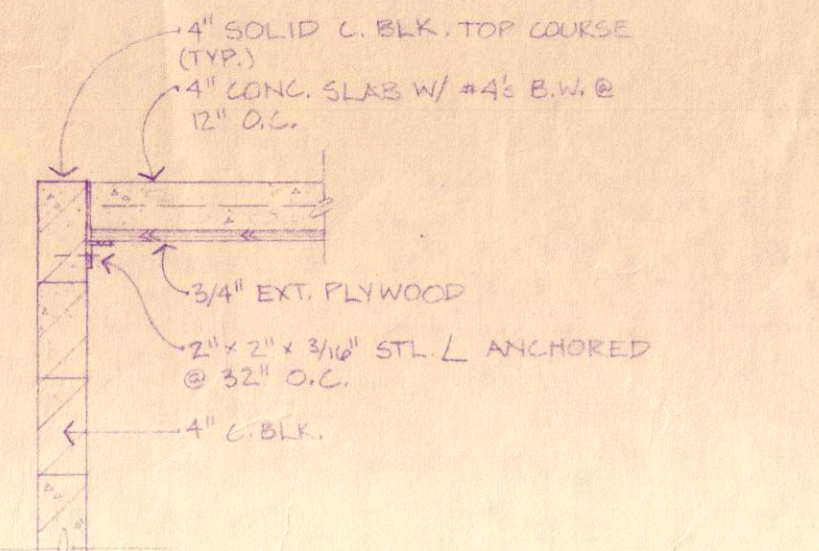 4" SOLID C. BLK. TOP COURSE
(TYP.)
4" CONC. SLAB W/ #4's B.W. @
12" O.C.
3/4" EXT. PLYWOOD
2" x 2" x 3/16" STL. L ANCHORED
@ 32" O.C.
4" C. BLK.